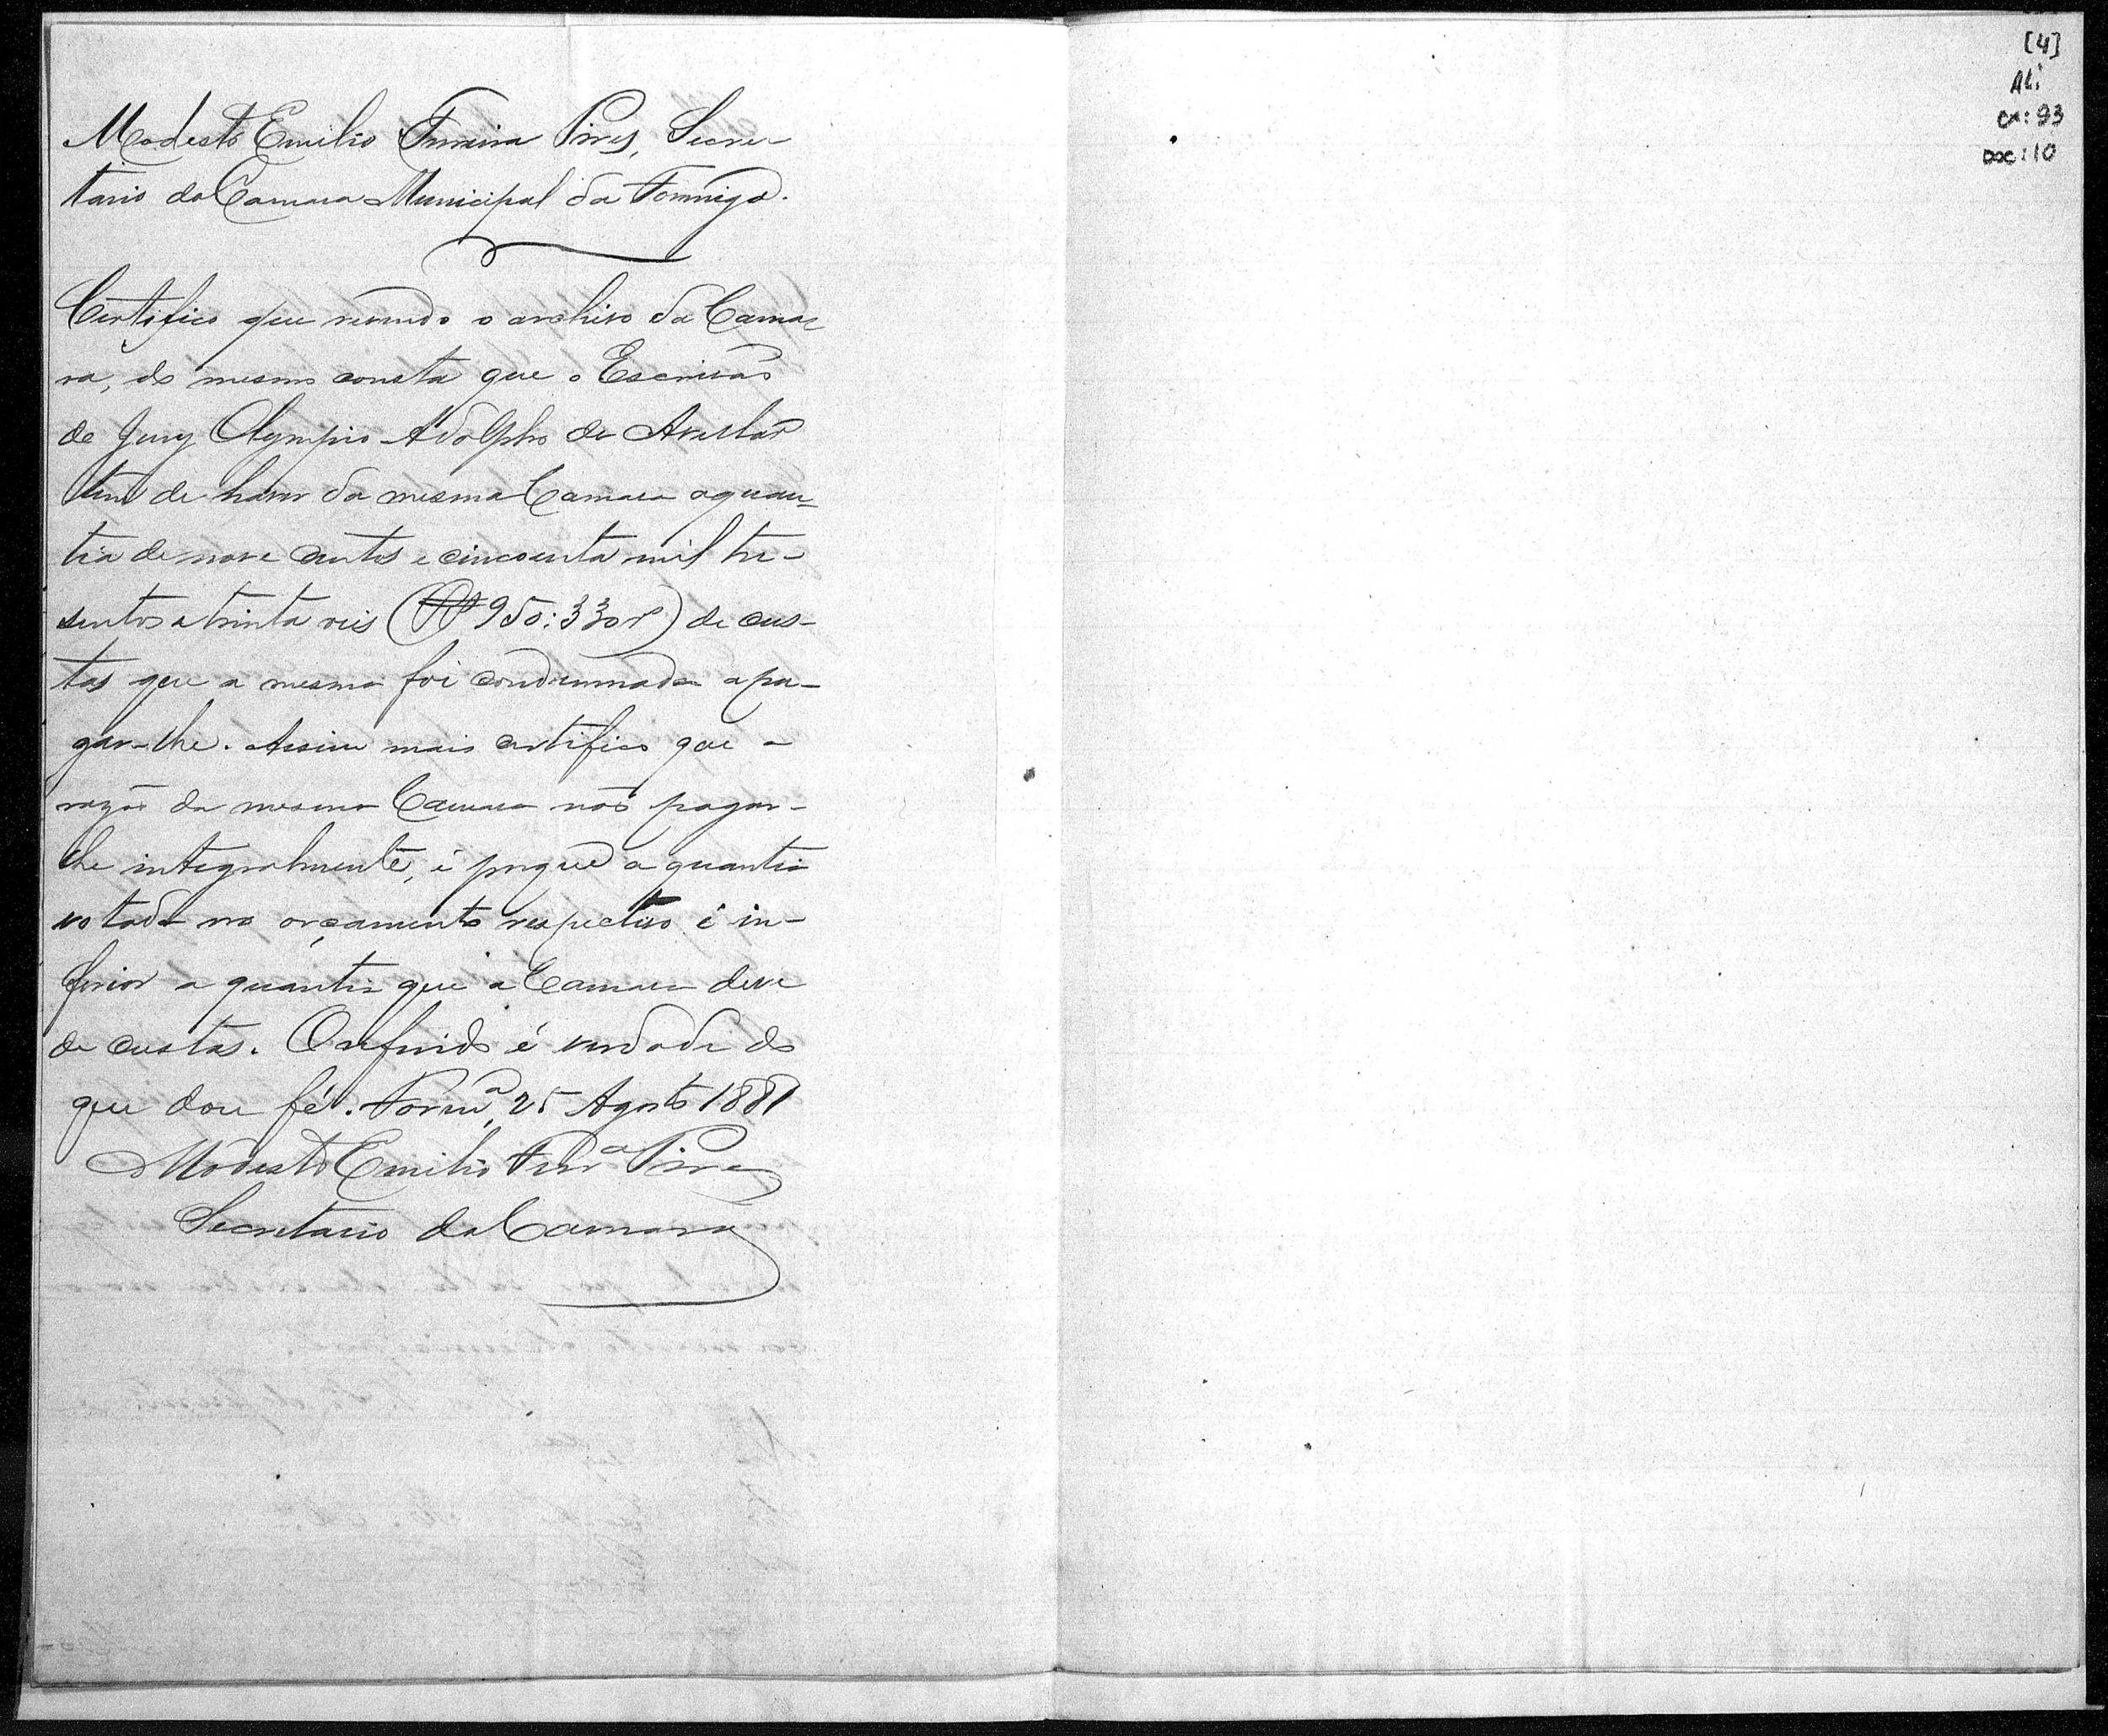 Modesto Emilio Ferreira Pires, Secre-
tario da Camara Municipal da Formiga.
Certifico que revendo o archivo da Cama-
ra, do mesmo consta que o Escrivão
de Jury Olympio Adolpho de Avellar
tem de haver da mesma Camara a quan-
tia de nove centos e cincoenta mil tre-
sentos e trinta reis (R 950:330r) de cus-
tas que a mesma foi condemnada a pa-
gar-lhe. Assim mais certifico que a
razão da mesma Camara não pagar-
lhe integralmente, é porque a quantia
votada no orçamento respectivo é in-
ferior a quantia que a Camara deve
de custas. O referido é verdade do
que dou fé. Formª, 25 Agosto 1881
Modesto Emilio Ferrª Pires
Secretario da Camara
[4]
ALI
cx: 93
DOC: 10